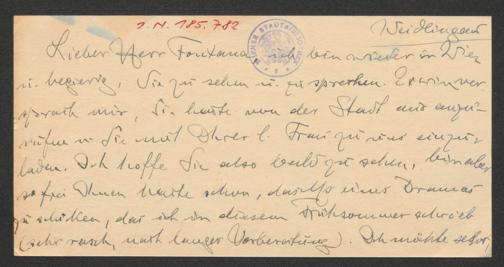 I.N. 185.782
Weidlingau
Lieber Herr Fontana, ich bin wieder in Wien
u. begierig, Sie zu sehen u. zu sprechen. Erwin ver
sprach mir, Sie heute von der Stadt aus anzu-
rufen u Sie mit Ihrer l. Frau zu uns einzu-
laden. Ich hoffe Sie also bald zu sehen, bin aber
so frei Ihnen heute schon, das eines Dramas
zu schicken, das ich in diesem Frühsommer schrieb
(sehr rasch, nach langer Vorbereitung). Ich möchte sehr,